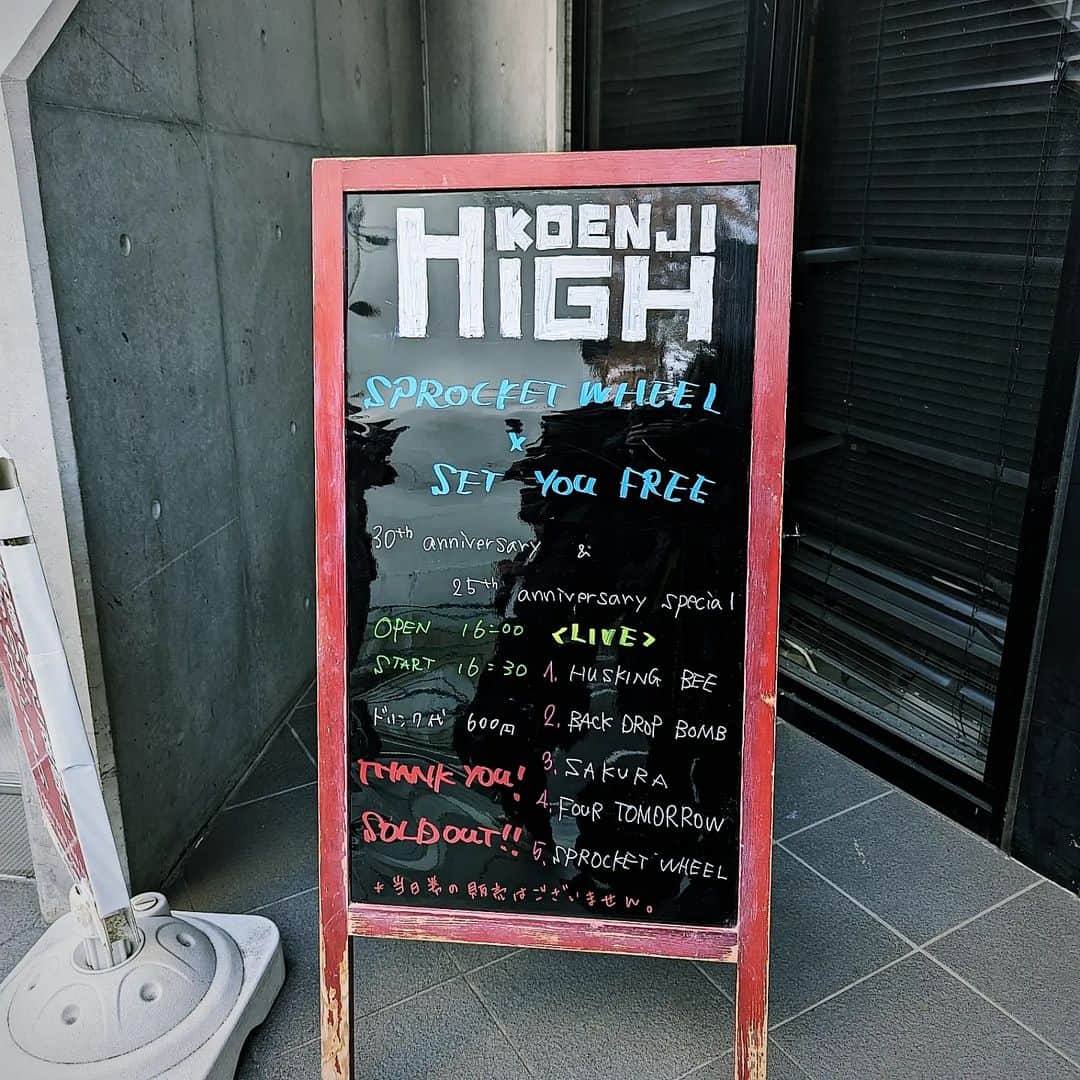 KOENJI
HIGH
SPROCKET WHEEL
×
SET YOU FREE
30th anniversary &
25th anniversary special
OPEN 16:00
START 16:30
ドリンク代 600円
THANK YOU!
SOLD OUT!!
<LIVE>
1. HUSKING BEE
2. BACK DROP BOMB
3. SAKURA
4. FOUR TOMORROW
5. SPROCKET WHEEL
* 当日券の販売はございません。